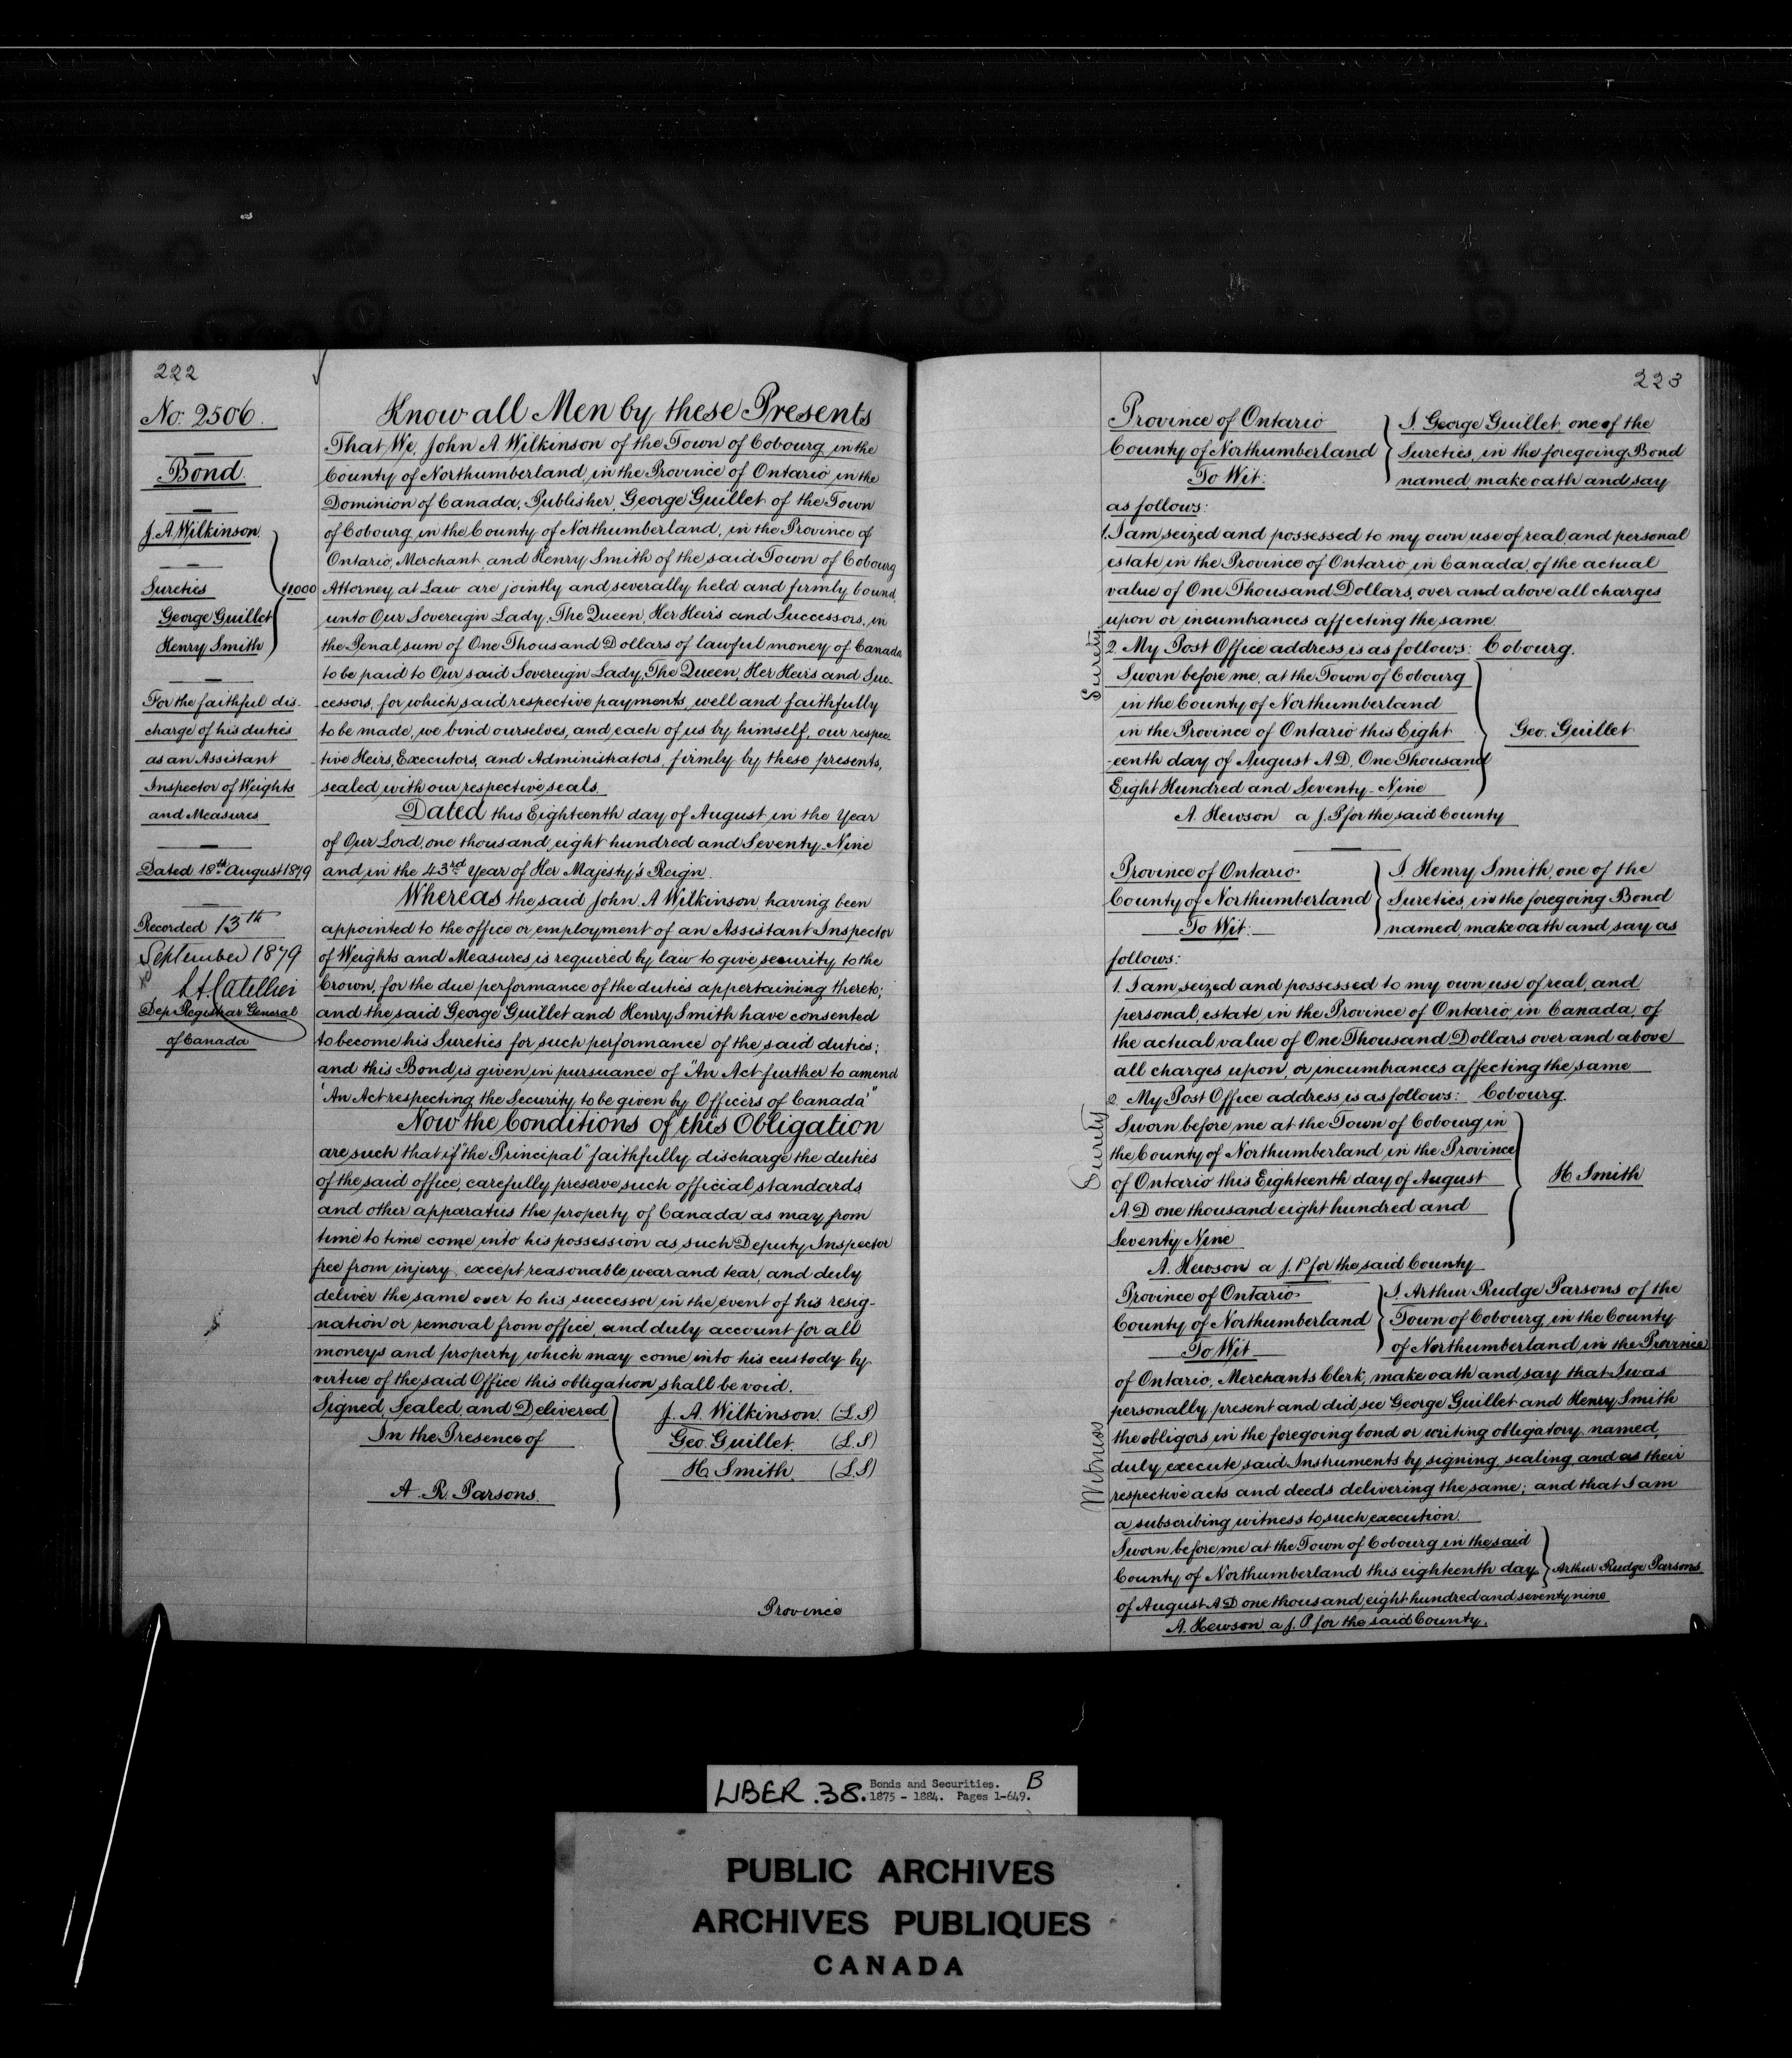 222
No. 2506.
Bond.
J. A. Wilkinson.
Sureties
$1000
George Guillet
Henry Smith
For the faithful dis-
charge of his duties
as an Assistant
Inspector of Weights
and Measures
Dated 18th August 1879
Recorded 13th
September 1879
Dep Registrar General
of Canada
Know all Men by these Presents
That We, John A Wilkinson of the Town of Cobourg in the
County of Northumberland, in the Province of Ontario in the
Dominion of Canada, Publisher, George Guillet of the Town
of Cobourg in the County of Northumberland, in the Province of
Ontario, Merchant and Henry Smith of the said Town of Cobourg
Attorney at Law are jointly and severally held and firmly bound,
unto Our Sovereign Lady, The Queen, Her Heirs and Successors, in
the Penal sum of One Thousand Dollars of lawful money of Canada
to be paid to Our said Sovereign Lady, The Queen, Her Heirs and Suc-
cessors, for which said respective payments, well and faithfully
to be made, we bind ourselves, and each of us by himself, our respec-
tive Heirs, Executors, and Administrators, firmly by these presents,
sealed with our respective seals.
Dated this Eighteenth day of August in the Year
of Our Lord, one thousand eight hundred and Seventy-Nine
and in the 43rd Year of Her Majesty's Reign.
Whereas the said John A Wilkinson, having been
appointed to the office or employment of an Assistant Inspector
of Weights and Measures is required by law to give security to the
Crown, for the due performance of the duties appertaining thereto;
and the said George Guillet and Henry Smith have consented
to become his Sureties for such performance of the said duties;
and this Bond is given in pursuance of "An Act further to amend
'An Act respecting the Security to be given by Officers of Canada'
Now the Conditions of this Obligation
are such that if "the Principal" faithfully discharge the duties
of the said office, carefully preserve such official standards
and other apparatus the property of Canada as may from
time to time come into his possession as such Deputy Inspector
free from injury, except reasonable wear and tear, and duly
deliver the same over to his successor in the event of his resig-
nation or removal from office, and duly account for all
moneys and property which may come into his custody by
virtue of the said Office this obligation shall be void.
Signed, Sealed, and Delivered
In the Presence of
A. R. Parsons.
J. A. Wilkinson. (L.S)
Geo. Guillet. (L.S)
H. Smith. (L.S)
Province
223
Province of Ontario
County of Northumberland
To Wit:
I, George Guillet, one of the
Sureties, in the foregoing Bond
named, make oath and say
as follows:
1. I am seized and possessed to my own use of real and personal
estate in the Province of Ontario in Canada, of the actual
value of One Thousand Dollars, over and above all charges
upon or incumbrances affecting the same.
2. My Post Office address is as follows: Cobourg.
Surety
Sworn before me, at the Town of Cobourg
in the County of Northumberland
in the Province of Ontario this Eight
-eenth day of August A D, One Thousand
Eight Hundred and Seventy-Nine
Geo. Guillet
A. Hewson a J. P for the said County
Province of Ontario
County of Northumberland
To Wit:
I Henry Smith, one of the
Sureties, in the foregoing Bond
named, make oath and say as
follows:
1. I am seized and possessed to my own use of real and
personal, estate in the Province of Ontario, in Canada, of
the actual value of One Thousand Dollars over and above
all charges upon, or incumbrances affecting the same
2. My Post Office address is as follows: Cobourg.
Surety
Sworn before me at the Town of Cobourg in
the County of Northumberland in the Province
of Ontario this Eighteenth day of August
A. D one thousand eight hundred and
Seventy Nine
H Smith
A. Hewson a J. P for the said County
Province of Ontario
County of Northumberland
To Wit
I, Arthur Rudge Parsons of the
Town of Cobourg, in the County
of Northumberland in the Province
of Ontario, Merchants Clerk, make oath and say that I was
personally present and did see George Guillet and Henry Smith
the obligors in the foregoing bond or writing obligatory named,
duly execute said Instruments by signing, sealing and as their
respective acts and deeds delivering the same; and that I am
a subscribing witness to such execution.
Witness
Sworn before me at the Town of Cobourg in the said
County of Northumberland this eighteenth day
of August A.D one thousand eight hundred and seventy nine
Arthur Rudge Parsons
A. Hewson, a J. P for the said County.
LIBER .38. Bonds and Securities. B
1875 - 1884. Pages 1-649.
PUBLIC ARCHIVES
ARCHIVES PUBLIQUES
CANADA